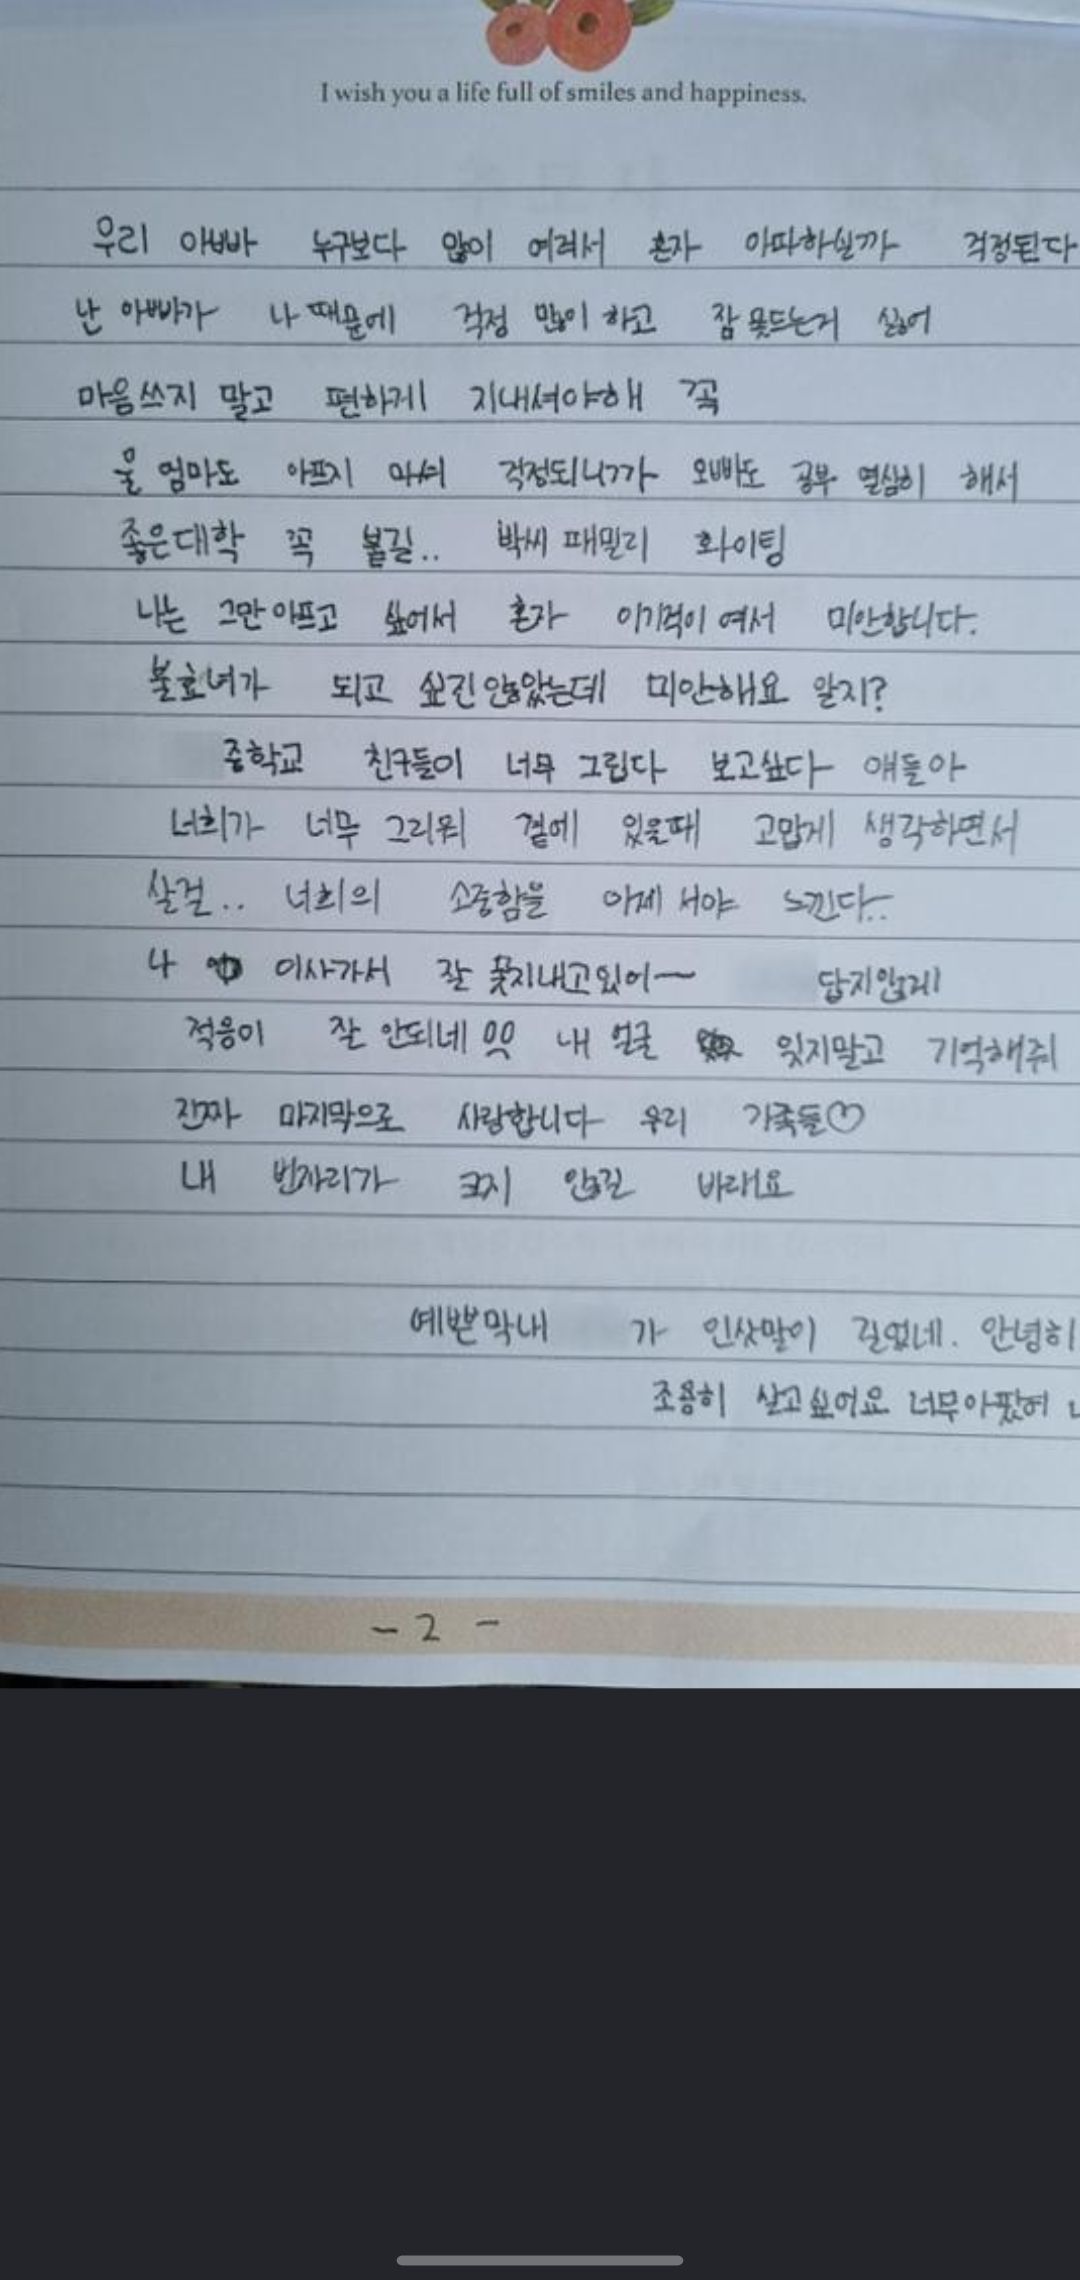 I wish you a life full of smiles and happiness.
우리 아빠 누구보다 많이 여려서 혼자 아파하실까 걱정된다
난 아빠가 나때문에 걱정 많이 하고 잠 못드는거 싫어
마음쓰지 말고 편하게 지내셔야해 꼭
울 엄마도 아프지 마셔 걱정되니까 오빠도 공부 열심히 해서
좋은대학 꼭 붙길.. 박씨 패밀리 화이팅
나는 그만아프고 싶어서 혼자 이기적이여서 미안합니다.
불효녀가 되고 싶진않았는데 미안해요 알지?
중학교 친구들이 너무 그립다 보고싶다 얘들아
너희가 너무 그리워 곁에 있을때 고맙게 생각하면서
살걸.. 너희의 소중함을 이제서야 느낀다..
나 이사가서 잘 못지내고있어~ 답지않게
적응이 잘 안되네 내 얼굴 잊지말고 기억해줘
진짜 마지막으로 사랑합니다 우리 가족들♡
내 빈자리가 크지 않길 바래요
예쁜막내 가 인삿말이 길었네. 안녕히
조용히 살고싶어요 너무아팠어
- 2 -